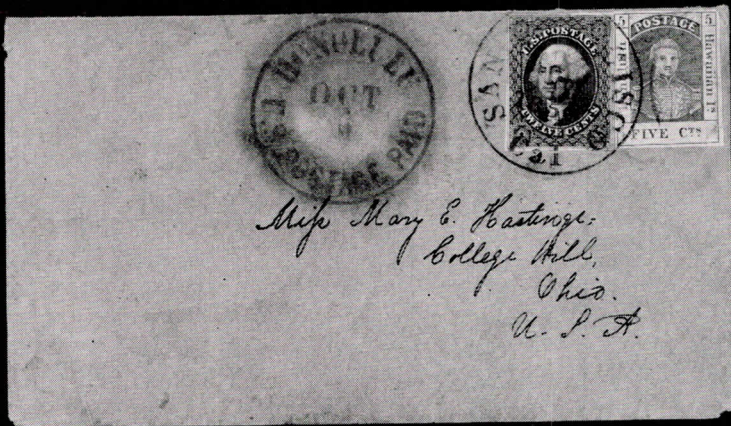 HONOLULU
OCT
U.S. POSTAGE PAID
SAN
Cal
U.S. POSTAGE
TWELVE CENTS
5 POSTAGE 5
Hawaiian Is.
FIVE CTS
Miss Mary E. Hastings,
College Hill,
Ohio.
U. S. A.